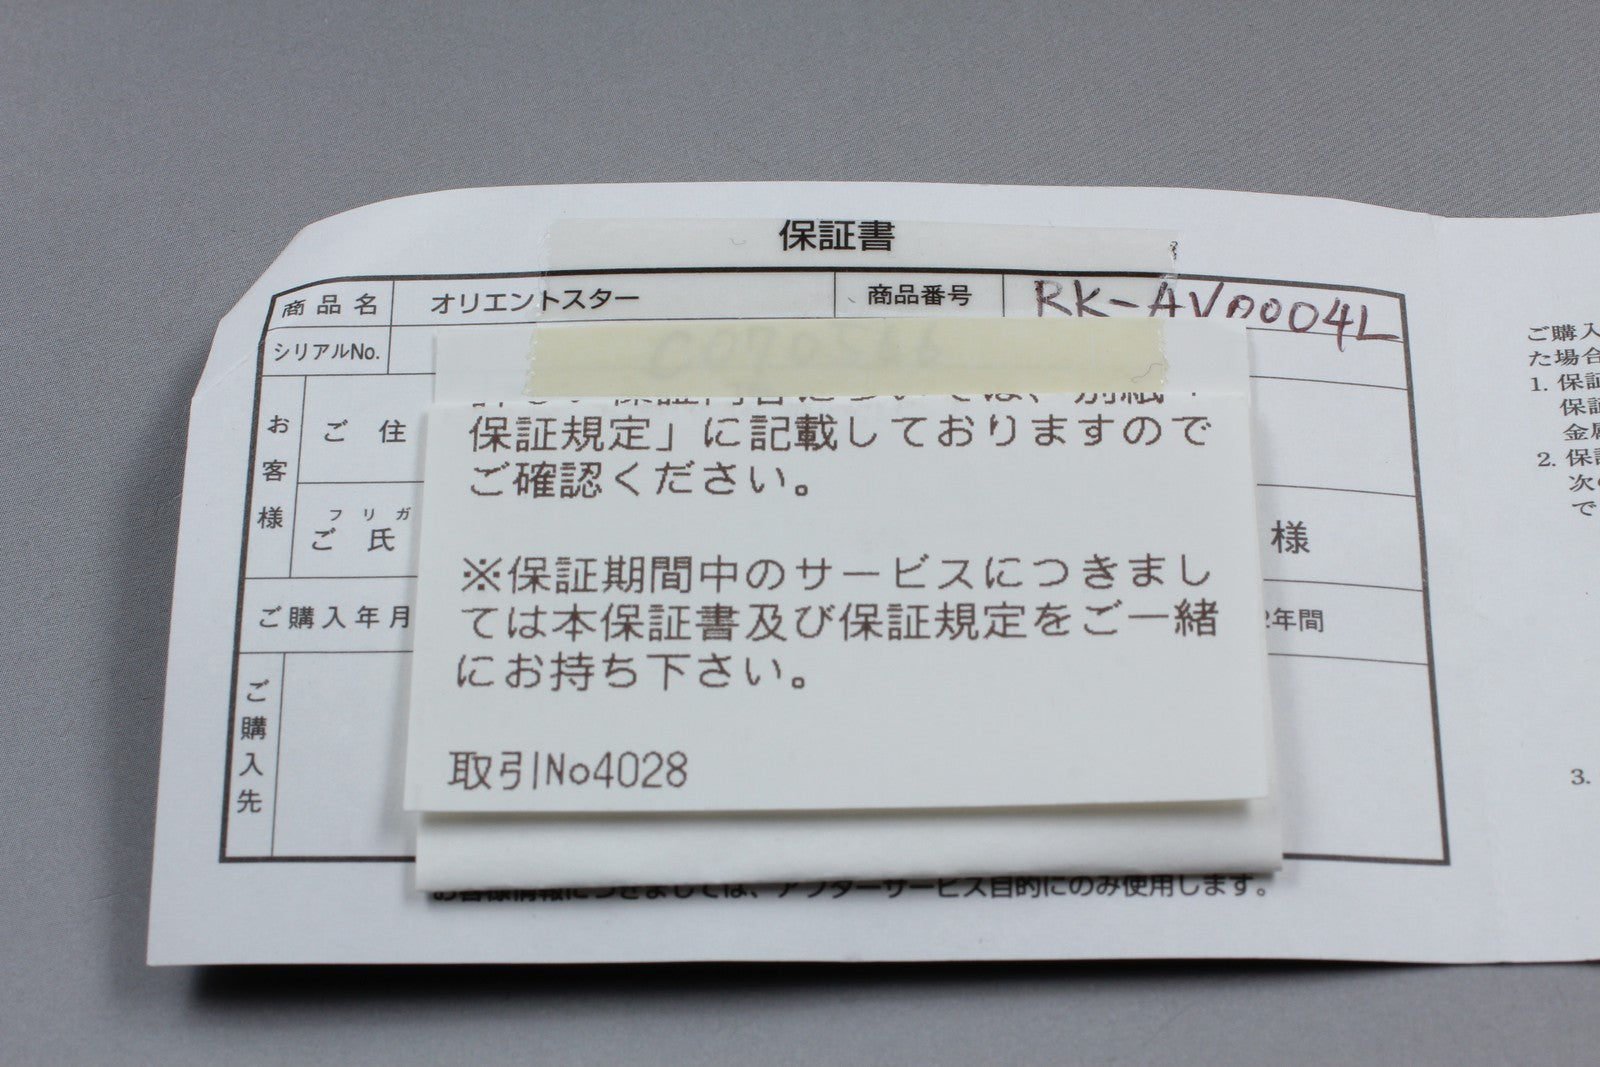 保証書
商品名 オリエントスター 商品番号 RK-AV0004L
シリアルNo.
お客様
ご住
フリガ
ご氏
様
ご購入年月
2年間
ご購入先
保証規定」に記載しておりますので
ご確認ください。
※保証期間中のサービスにつきまし
ては本保証書及び保証規定をご一緒
にお持ち下さい。
取引No4028
お客様情報につきましては、アフターサービス目的にのみ使用します。
ご購入
た場合
1. 保証
保証
金属
2. 保証
次の
で
3.